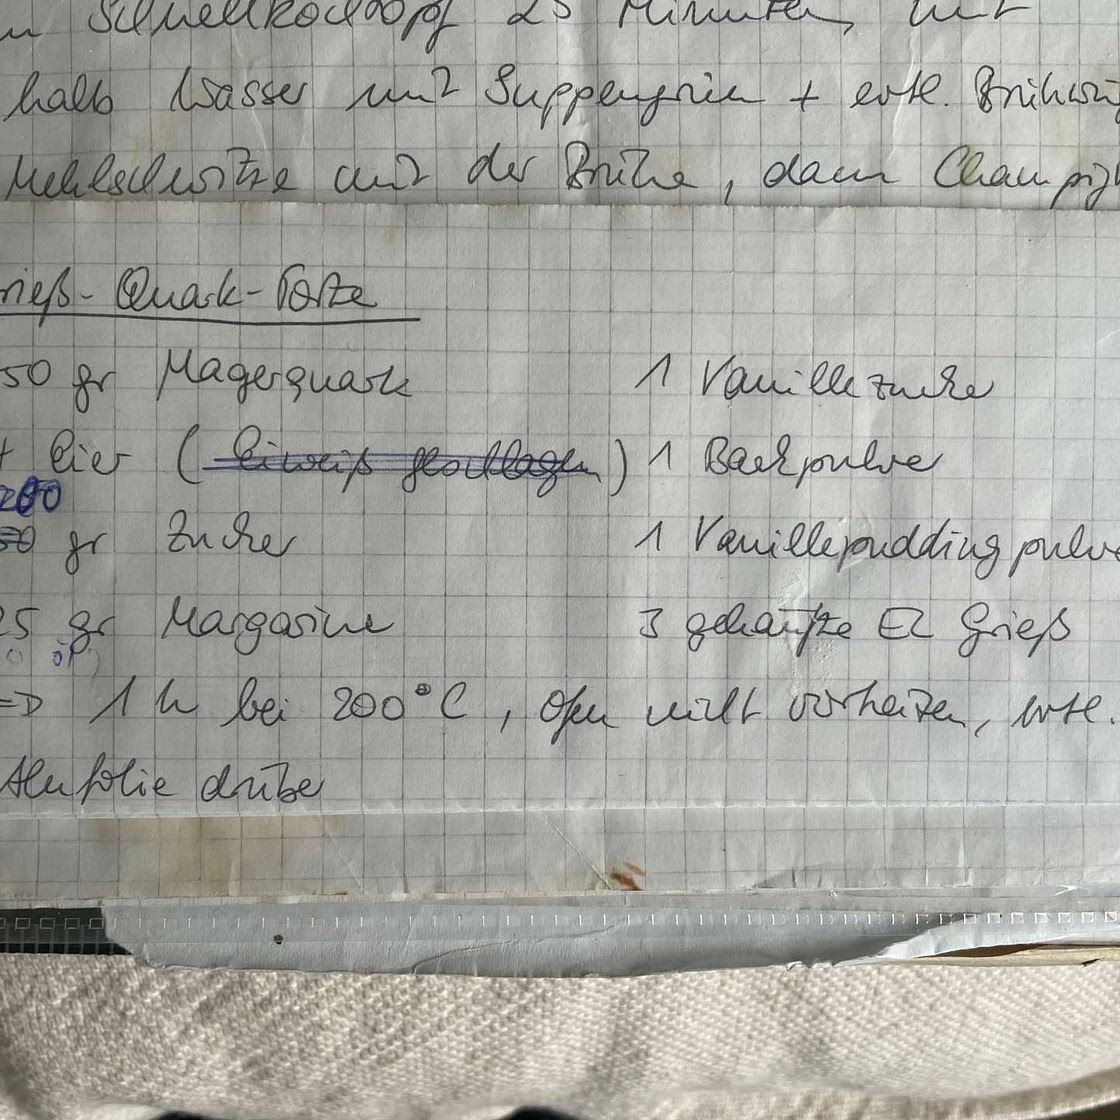 Schnellkochtopf 25 Minuten, mit
halb Wasser und Suppengrün + evtl. Brühwü
Mehlschwitze mit der Brühe, dann Champi
rieß-Quark-Torte
50 gr Magerquark 1 Vanillezucker
Eier (Eiweiß geschlagen) 1 Backpulver
200
50 gr Zucker 1 Vanillepuddingpulve
25 gr Margarine 3 gehäufte EL Grieß
=> 1 h bei 200°C, Ofen nicht vorheizen, evtl.
Alufolie drüber